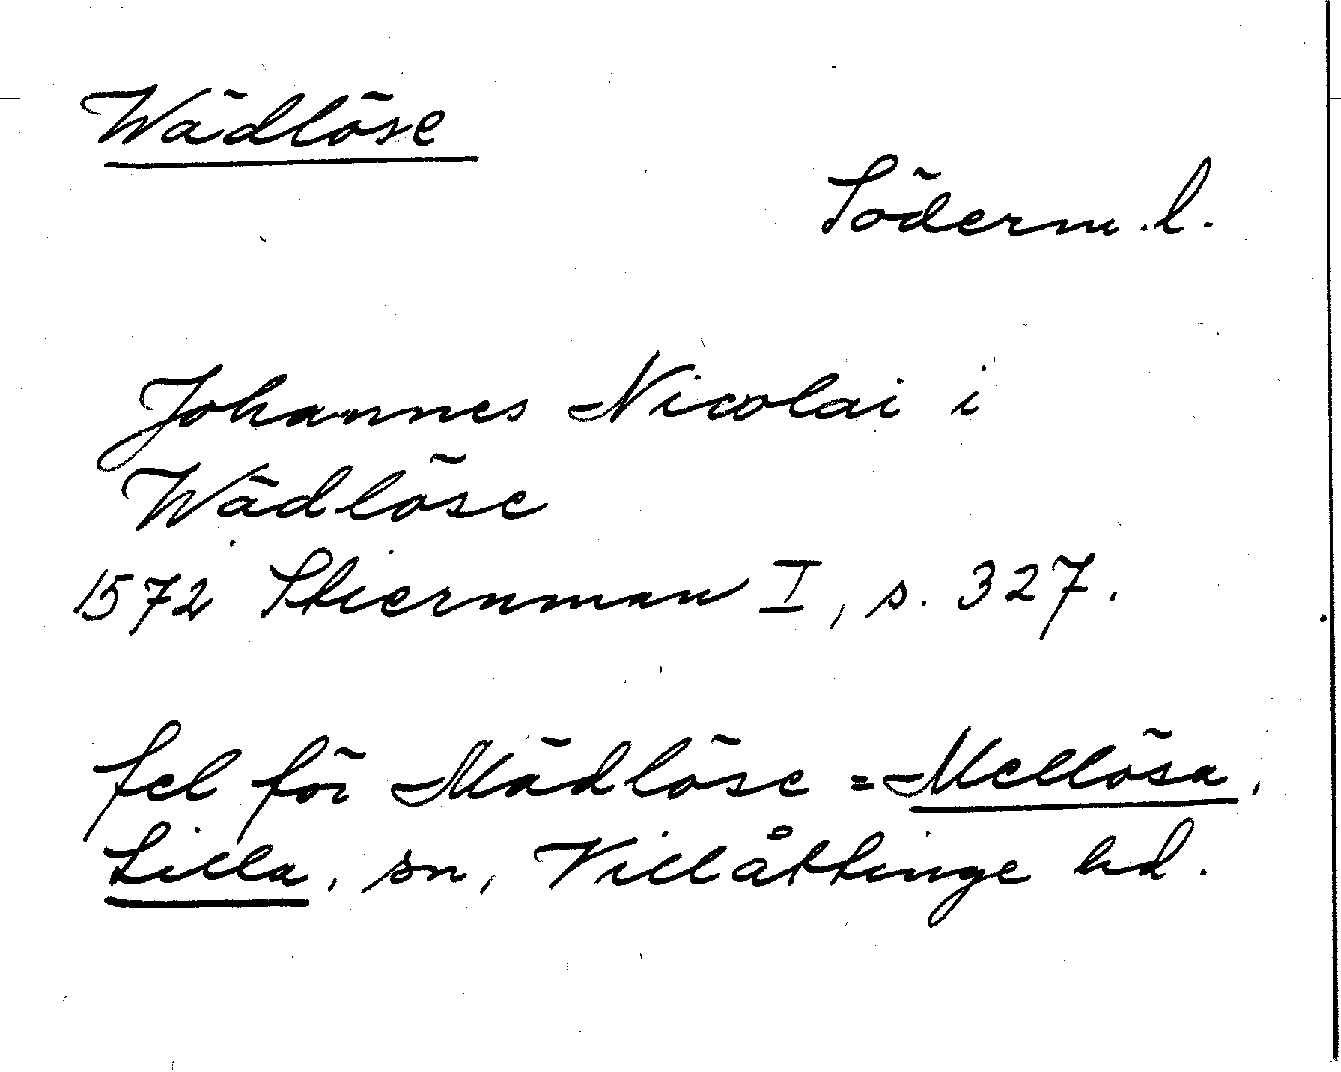 Wädlöse
Söderm.l.
Johannes Nicolai i
Wädlöse
1572 Stiernman I, s. 327.
fel för Mädlöse = Mellösa,
Lilla, sn, Villåttinge hd.